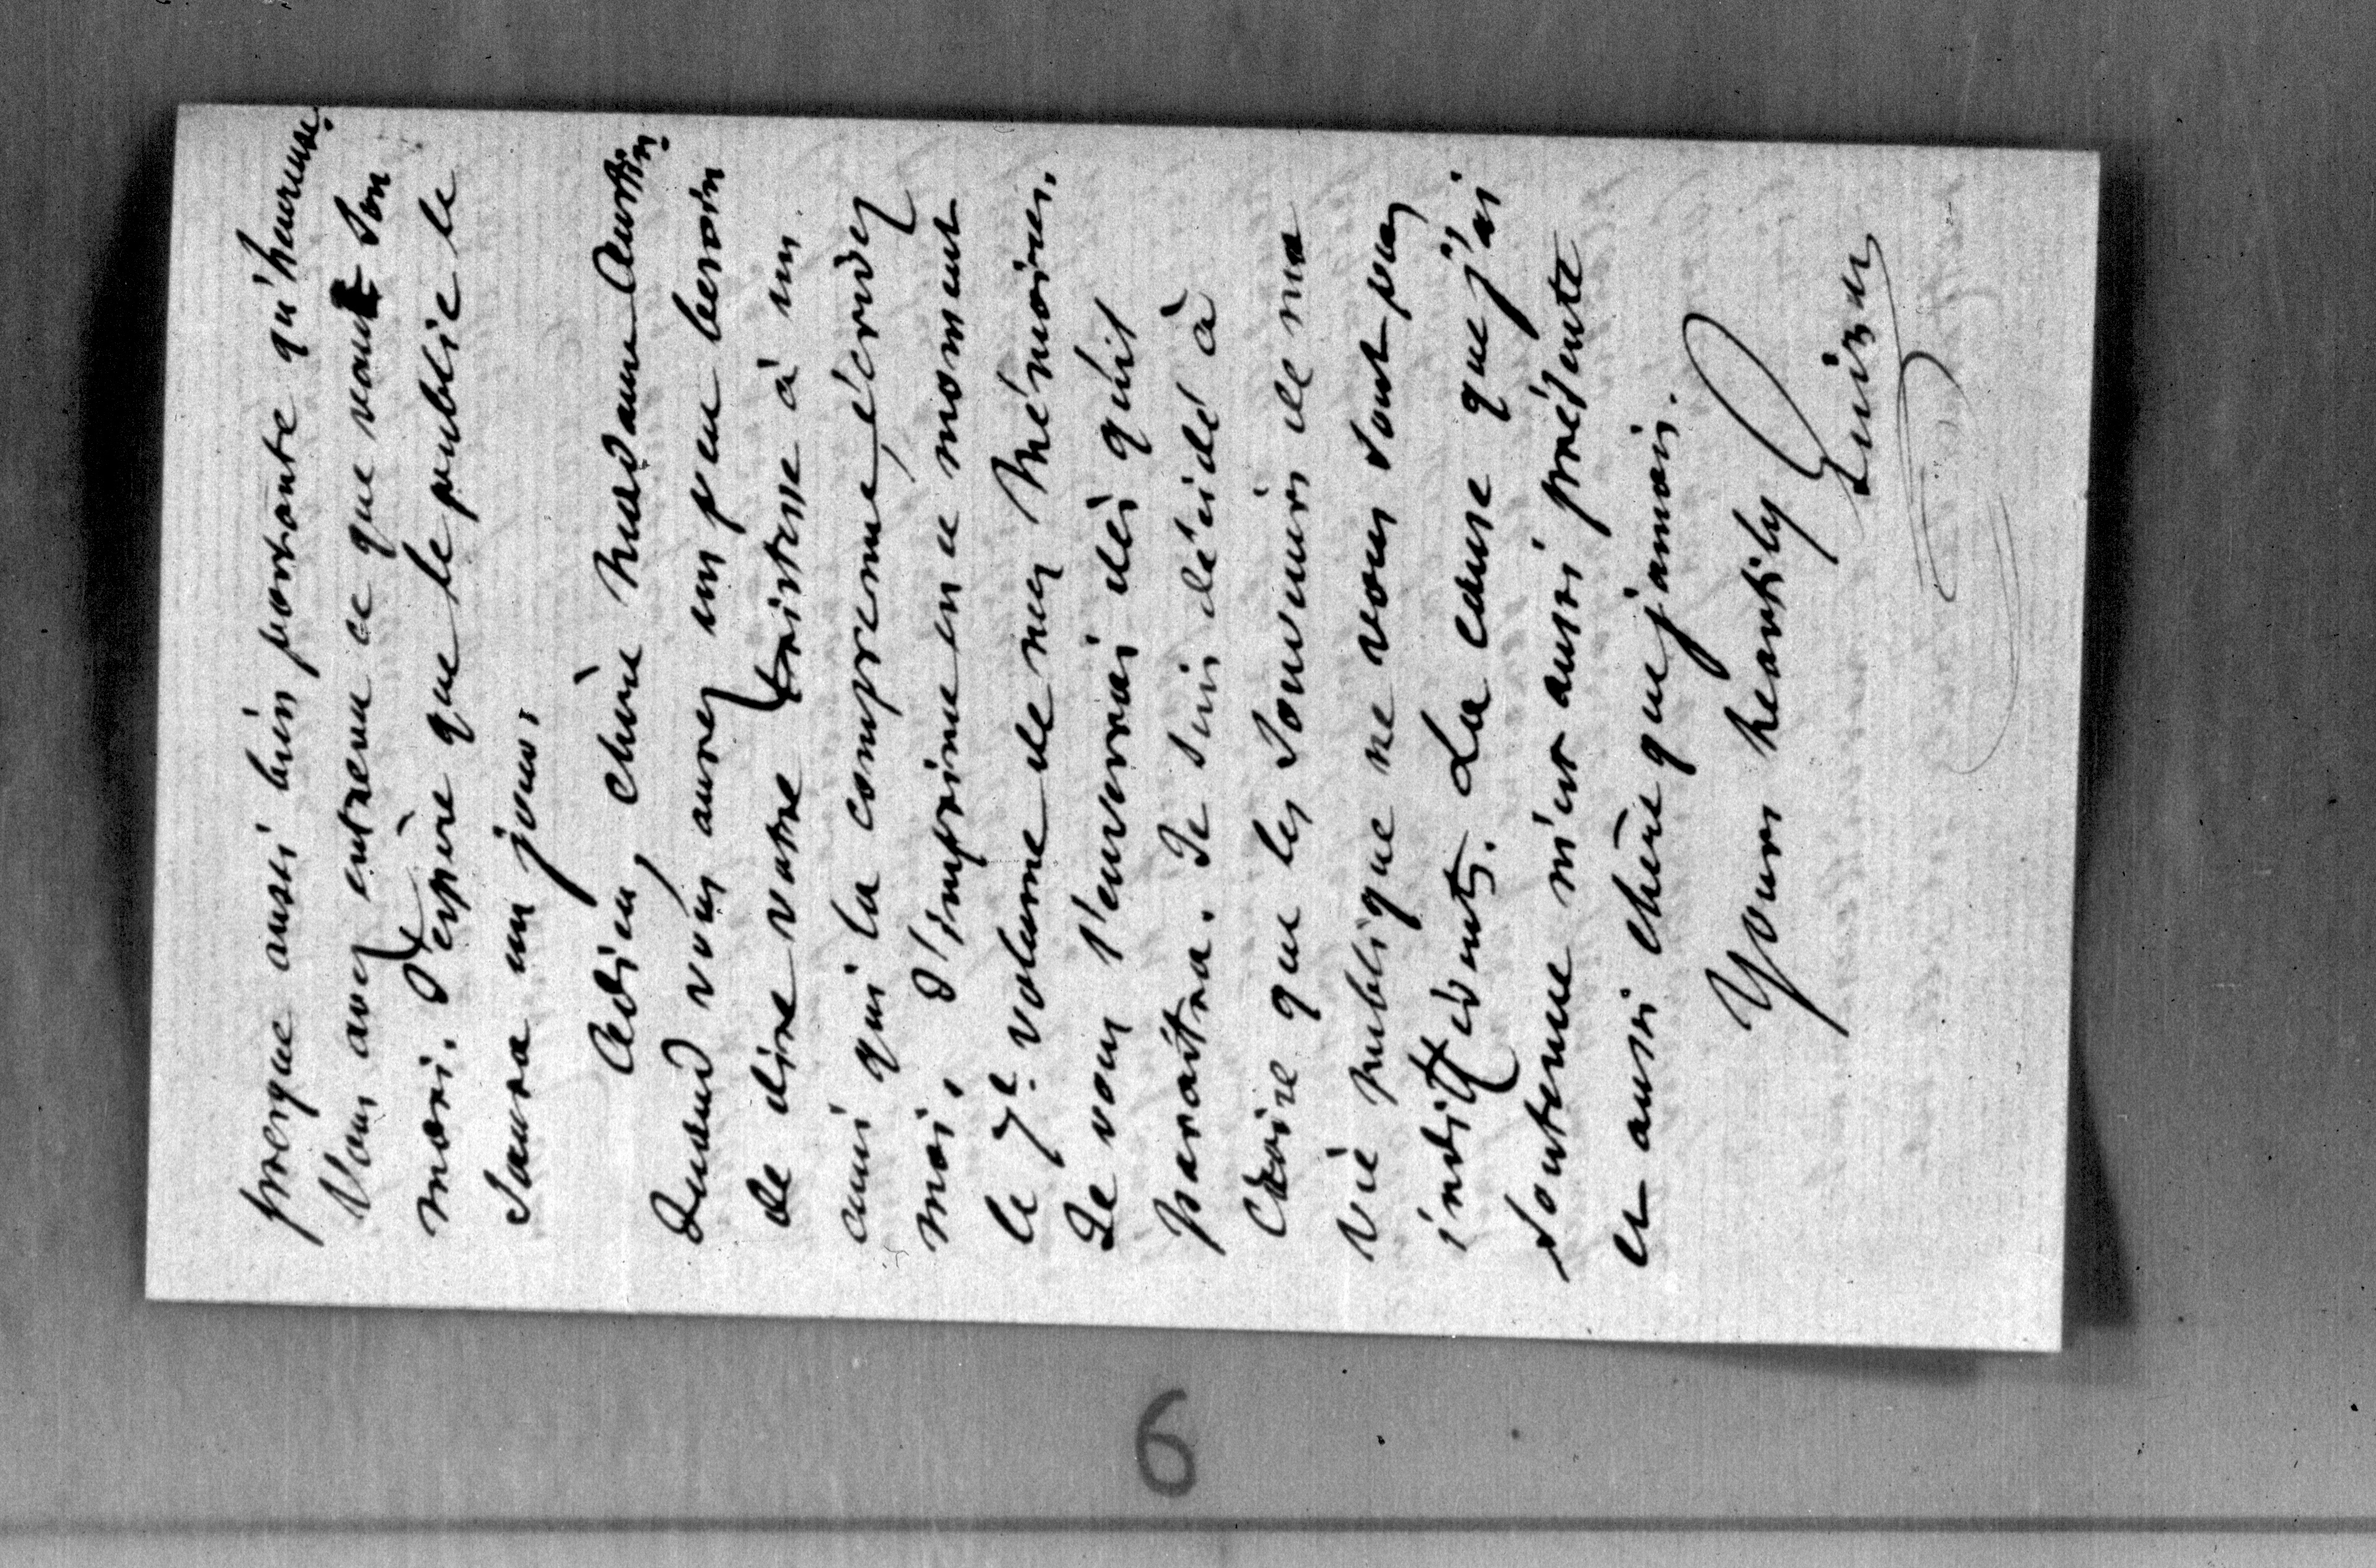 presque aussi bien portante qu'heureuse.
Vous avez entrevu ce que vaut son
mari. J'espère que le public le
saura un jour.
Adieu, chère Madame Austin.
Quand vous aurez un peu besoin
de dire votre tristesse à un
ami qui la comprenne, écrivez
moi. J'imprime en ce moment
le 7e volume de mes Mémoires.
Je vous l'enverrai dès qu'il
paraîtra. Je suis décidé à
croire que les souvenirs de ma
vie publique ne vous sont pas
indifférents. La cause que j'ai
soutenue m'est aussi présente
et aussi chère que jamais.
Yours heartily
Guizot
6